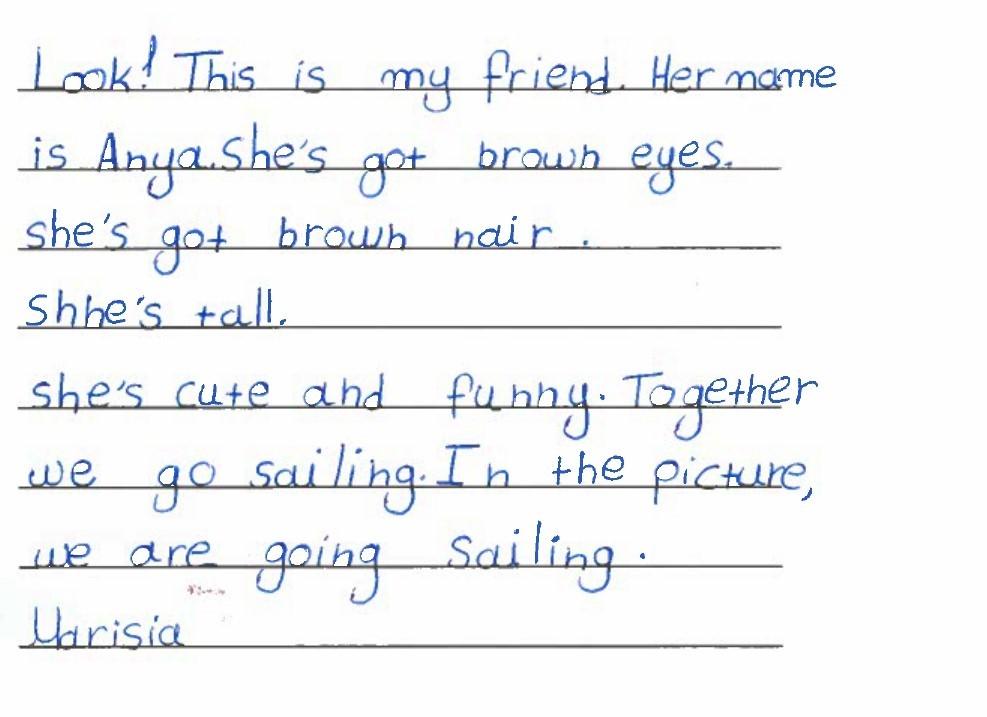 Look! This is my friend. Her name
is Anya. She's got brown eyes.
she's got brown hair.
Shhe's tall.
she's cute and funny. Together
we go sailing. In the picture,
we are going sailing.
Marisia